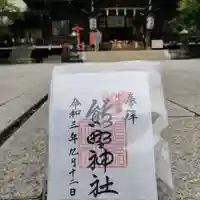 奉拝
熊野神社
令和三年九月十二日